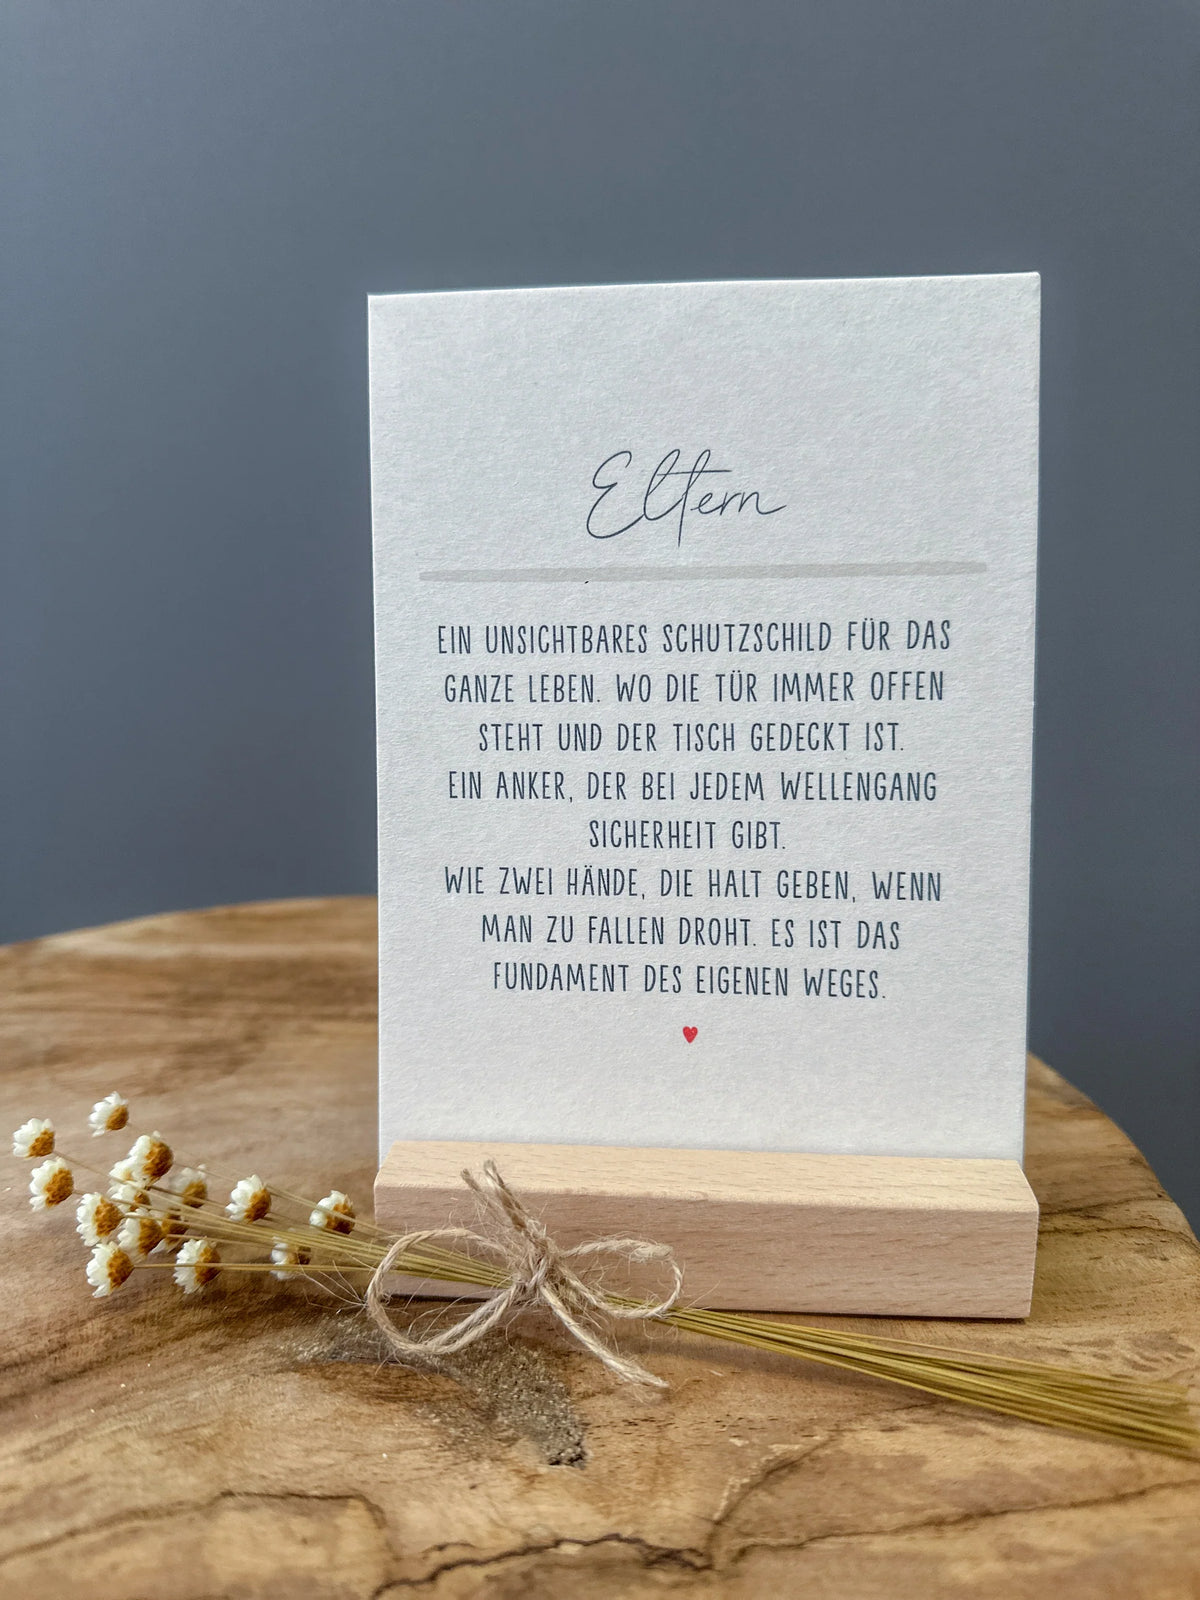 Eltern
EIN UNSICHTBARES SCHUTZSCHILD FÜR DAS
GANZE LEBEN. WO DIE TÜR IMMER OFFEN
STEHT UND DER TISCH GEDECKT IST.
EIN ANKER, DER BEI JEDEM WELLENGANG
SICHERHEIT GIBT.
WIE ZWEI HÄNDE, DIE HALT GEBEN, WENN
MAN ZU FALLEN DROHT. ES IST DAS
FUNDAMENT DES EIGENEN WEGES.